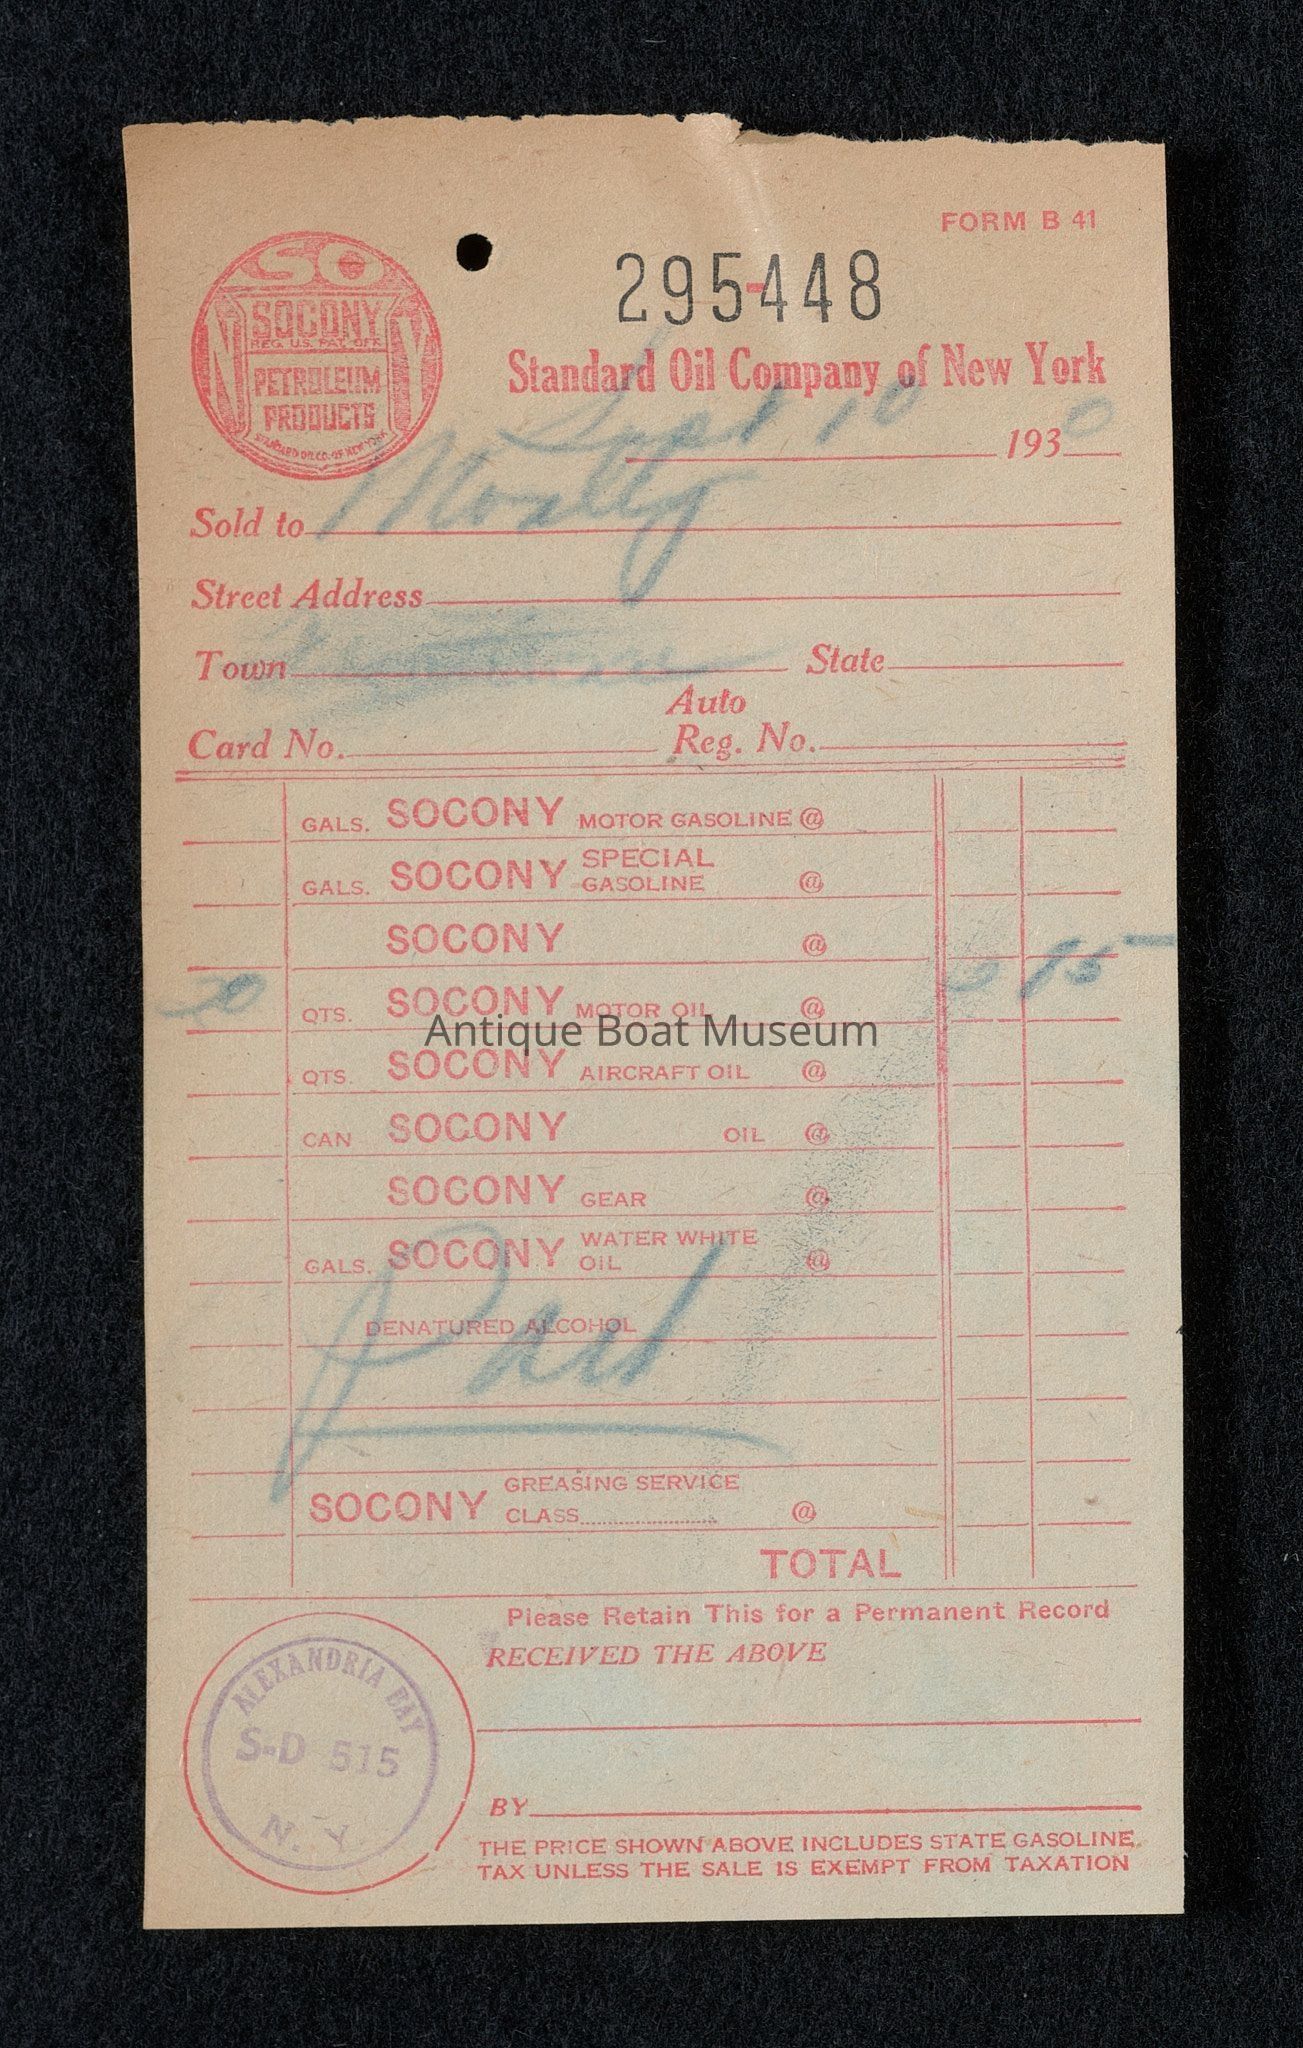 FORM B 41
SO
SOCONY
REG. U.S. PAT. OFF.
PETROLEUM
PRODUCTS
STANDARD OIL CO. OF NEW YORK
NY
295448
Standard Oil Company of New York
Sept 10 1930
Sold to
Street Address
Town State
Auto
Card No. Reg. No.
GALS. SOCONY MOTOR GASOLINE @
GALS. SOCONY SPECIAL GASOLINE @
SOCONY @
20 QTS. SOCONY MOTOR OIL @ 15
Antique Boat Museum
QTS. SOCONY AIRCRAFT OIL @
CAN SOCONY OIL @
SOCONY GEAR @
GALS. SOCONY WATER WHITE OIL @
DENATURED ALCOHOL
Paid
SOCONY GREASING SERVICE
CLASS @
TOTAL
Please Retain This for a Permanent Record
RECEIVED THE ABOVE
ALEXANDRIA BAY
S-D 515
N. Y.
BY
THE PRICE SHOWN ABOVE INCLUDES STATE GASOLINE
TAX UNLESS THE SALE IS EXEMPT FROM TAXATION